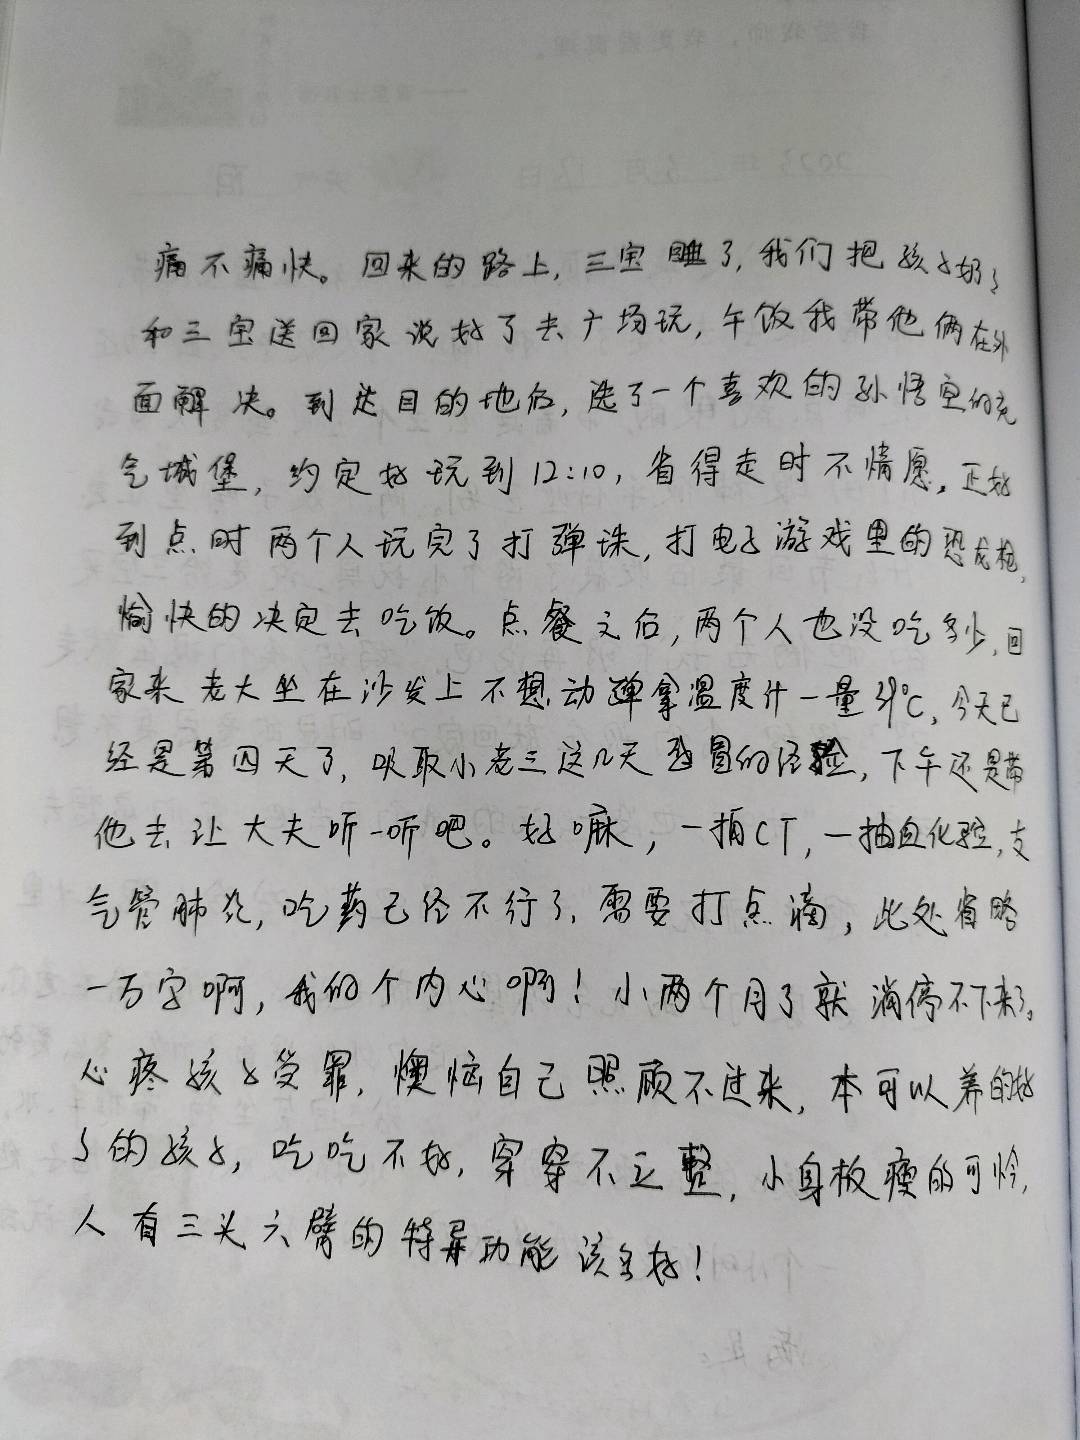 痛不痛快。回来的路上,三宝睡了,我们把孩子奶奶
和三宝送回家说好了去广场玩,午饭我带他俩在外
面解决。到达目的地后,选了一个喜欢的孙悟空的充
气城堡,约定好玩到12:10,省得走时不情愿。正好
到点时两个人玩完了打弹珠,打电子游戏里的恐龙枪,
愉快的决定去吃饭。点餐之后,两个人也没吃多少,回
家来老大坐在沙发上不想动弹拿温度计一量 ℃,今天已
经是第四天了,吸取小老三这几天感冒的经验,下午还是带
他去让大夫听一听吧。好嘛,一拍CT,一抽血化验,支
气管肺炎,吃药已经不行了,需要打点滴,此处省略
一万字啊,我的个内心啊!小两个月了就消停不下来了。
心疼孩子受罪,懊恼自己照顾不过来,本可以养的好
好的孩子,吃吃不好,穿穿不立整,小身板瘦的可怜,
人有三头六臂的特异功能该多好!